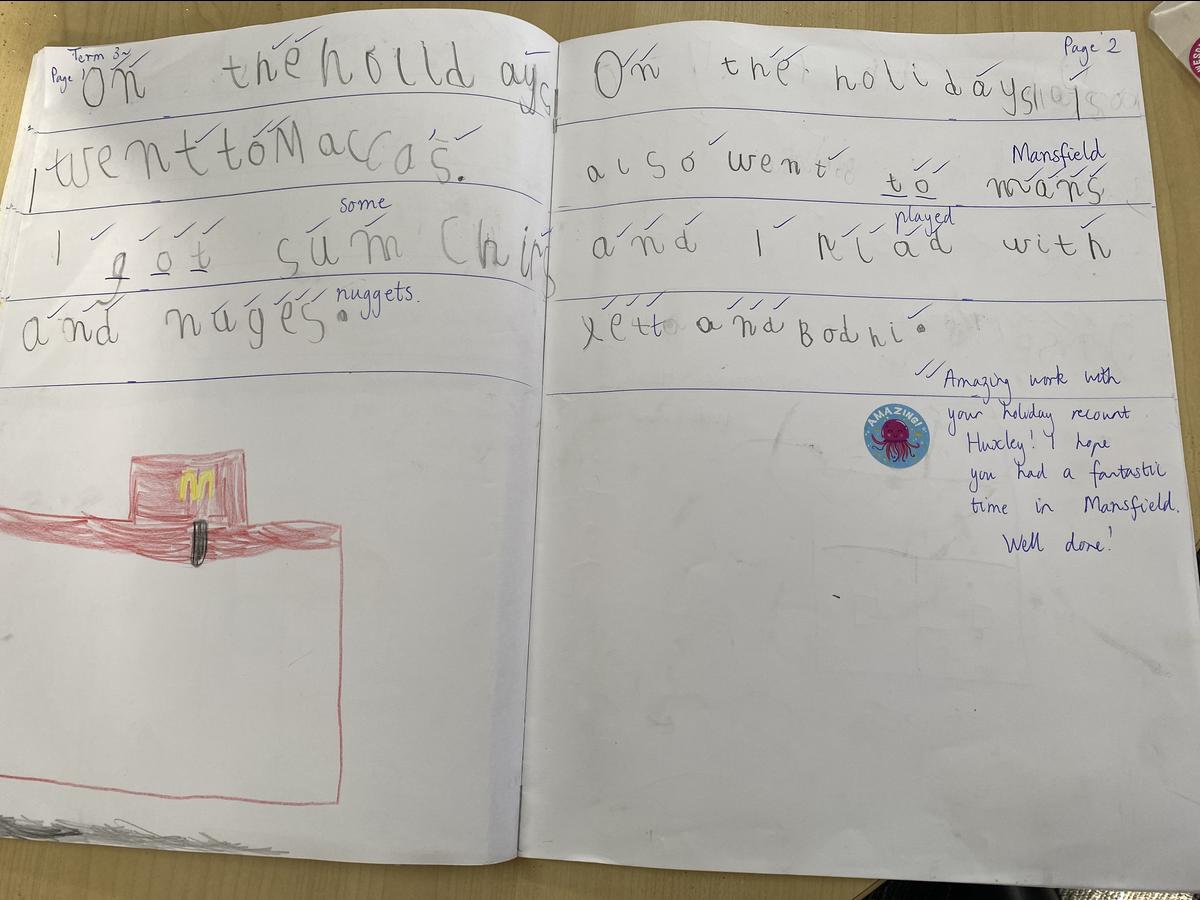 Term 3
Page 1
On the holidays
I went to Maccas.
some
I got sum Chips
and nuges.
nuggets.
M
Page 2
On the holidays I
also went to mans
Mansfield
played
and I plad with
and Bodhi.
Amazing work with
your holiday recount
Huxley! I hope
you had a fantastic
time in Mansfield.
Well done!
AMAZING!